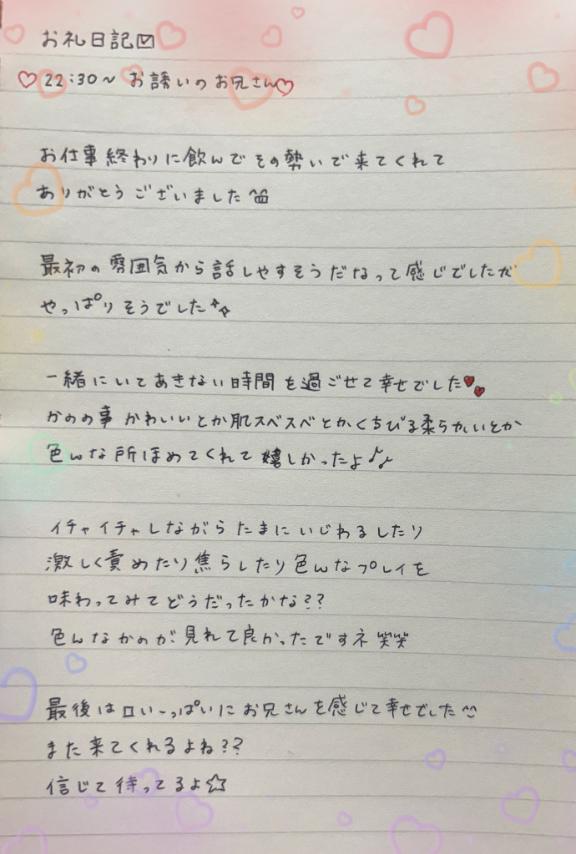 お礼日記
♡22:30~ お誘いのお兄さん♡
お仕事終わりに飲んでその勢いで来てくれて
ありがとうございました
最初の雰囲気から話しやすそうだなって感じでしたが
やっぱりそうでした
一緒にいてあきない時間を過ごせて幸せでした
かのの事かわいいとか肌スベスベとかくちびる柔らかいとか
色んな所ほめてくれて嬉しかったよ♪♪
イチャイチャしながらたまにいじわるしたり
激しく責めたり焦らしたり色んなプレイを
味わってみてどうだったかな??
色んなかのが見れて良かったですネ笑笑
最後は口いーっぱいにお兄さんを感じて幸せでした
また来てくれるよね??
信じて待ってるよ☆